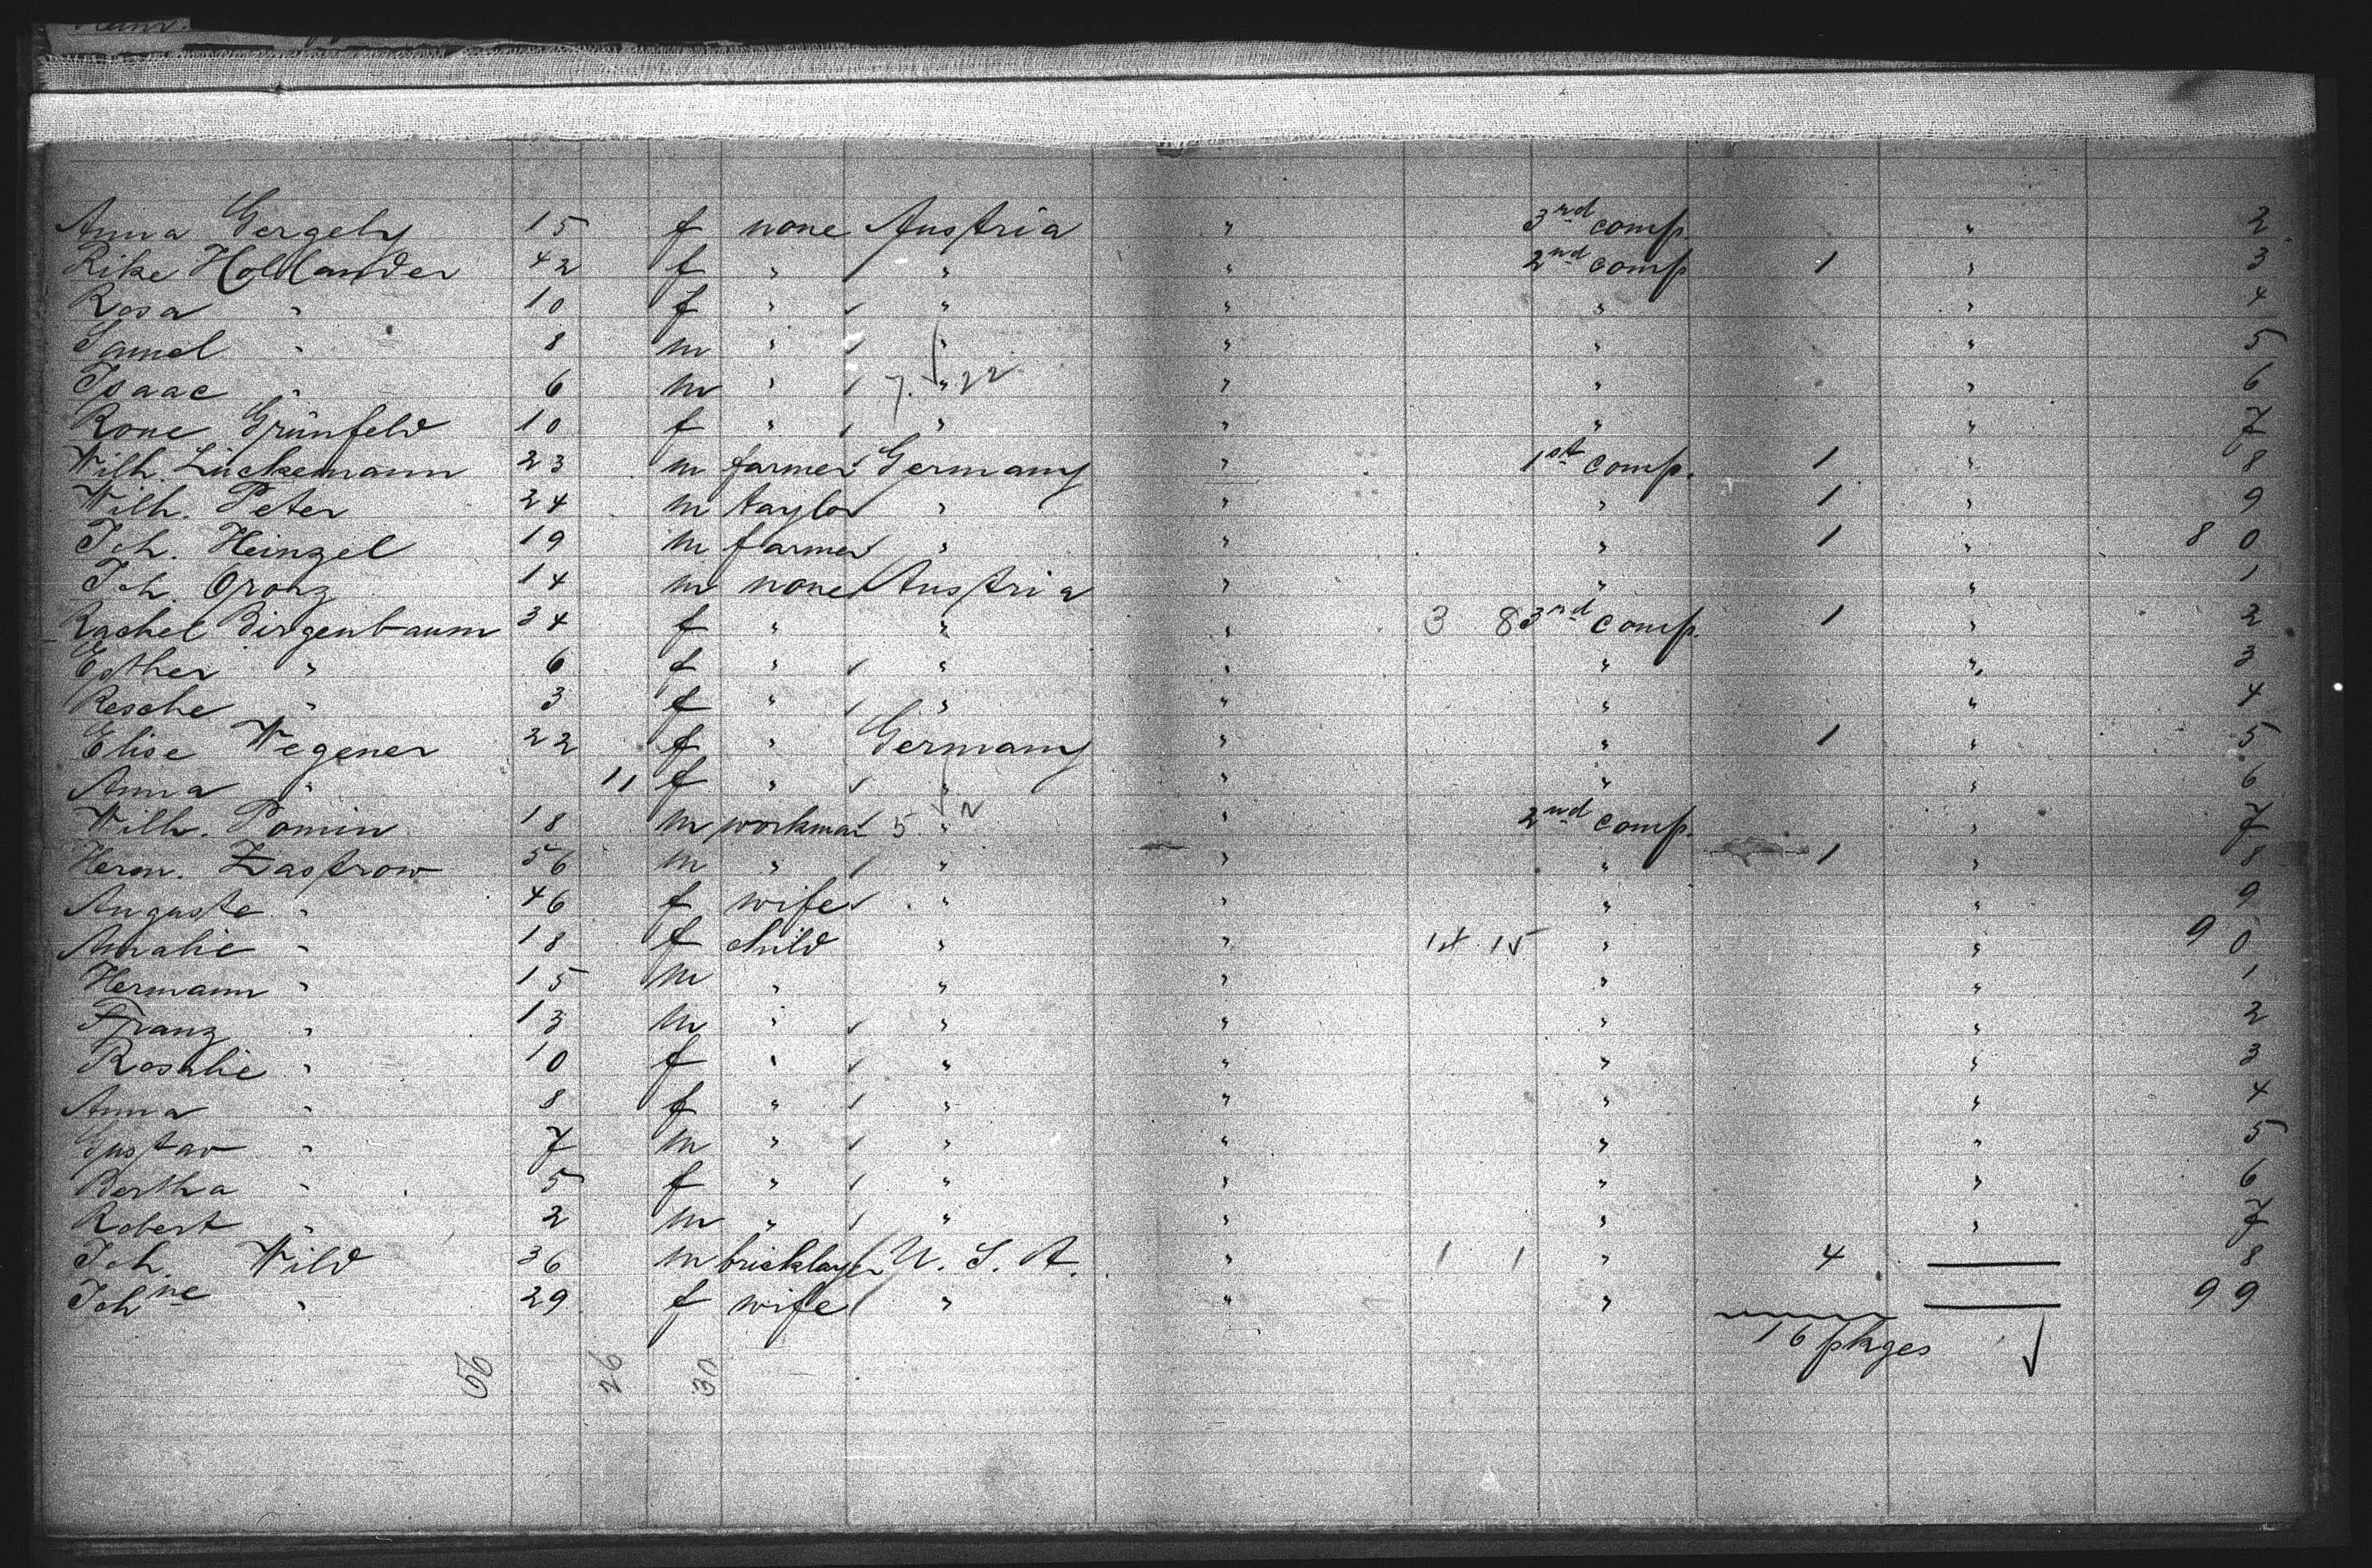 Anna Gergely 15 f none Austria " 3rd comp. " 2
Rike Hollander 42 f " " " 2nd comp 1 " 3
Rosa " 10 f " " " " " 4
Samel " 8 m " " " " " 5
Isaac " 6 m " 7. " 22 " " " 6
Rone Grünfeld 10 f " " " " " 7
Wilh. Lückemann 23 m farmer Germany " 1st comp. 1 " 8
Wilh. Peter 24 m taylor " " " 1 " 9
Joh. Heinzel 19 m farmer " " " 1 " 8 0
Joh. Orosz 14 m none Austria " " " 1
Rachel Birgenbaum 34 f " " " 3 8 3rd comp. 1 " 2
Esther " 6 f " " " " " 3
Resche " 3 f " " " " " 4
Elise Wegener 22 f " Germany " " 1 " 5
Anna " 11 f " " " " " 6
Wilh. Pomin 18 m workman 5. " " 2nd comp. " 7
Herm. Zastrow 56 m " " " " 1 " 8
Auguste " 46 f wife " " " " 9
Amalie " 18 f child " " 15 " " 9 0
Hermann " 15 m " " " " " 1
Franz " 13 m " " " " " 2
Rosalie " 10 f " " " " " 3
Anna " 8 f " " " " " 4
Gustav " 7 m " " " " " 5
Bertha " 5 f " " " " " 6
Robert " 2 m " " " " " 7
Joh. Wild 36 m bricklayer U. S. A. " 1 1 " 4 8
Johne " 29 f wife " " " 9 9
16 pkges
56 26 30